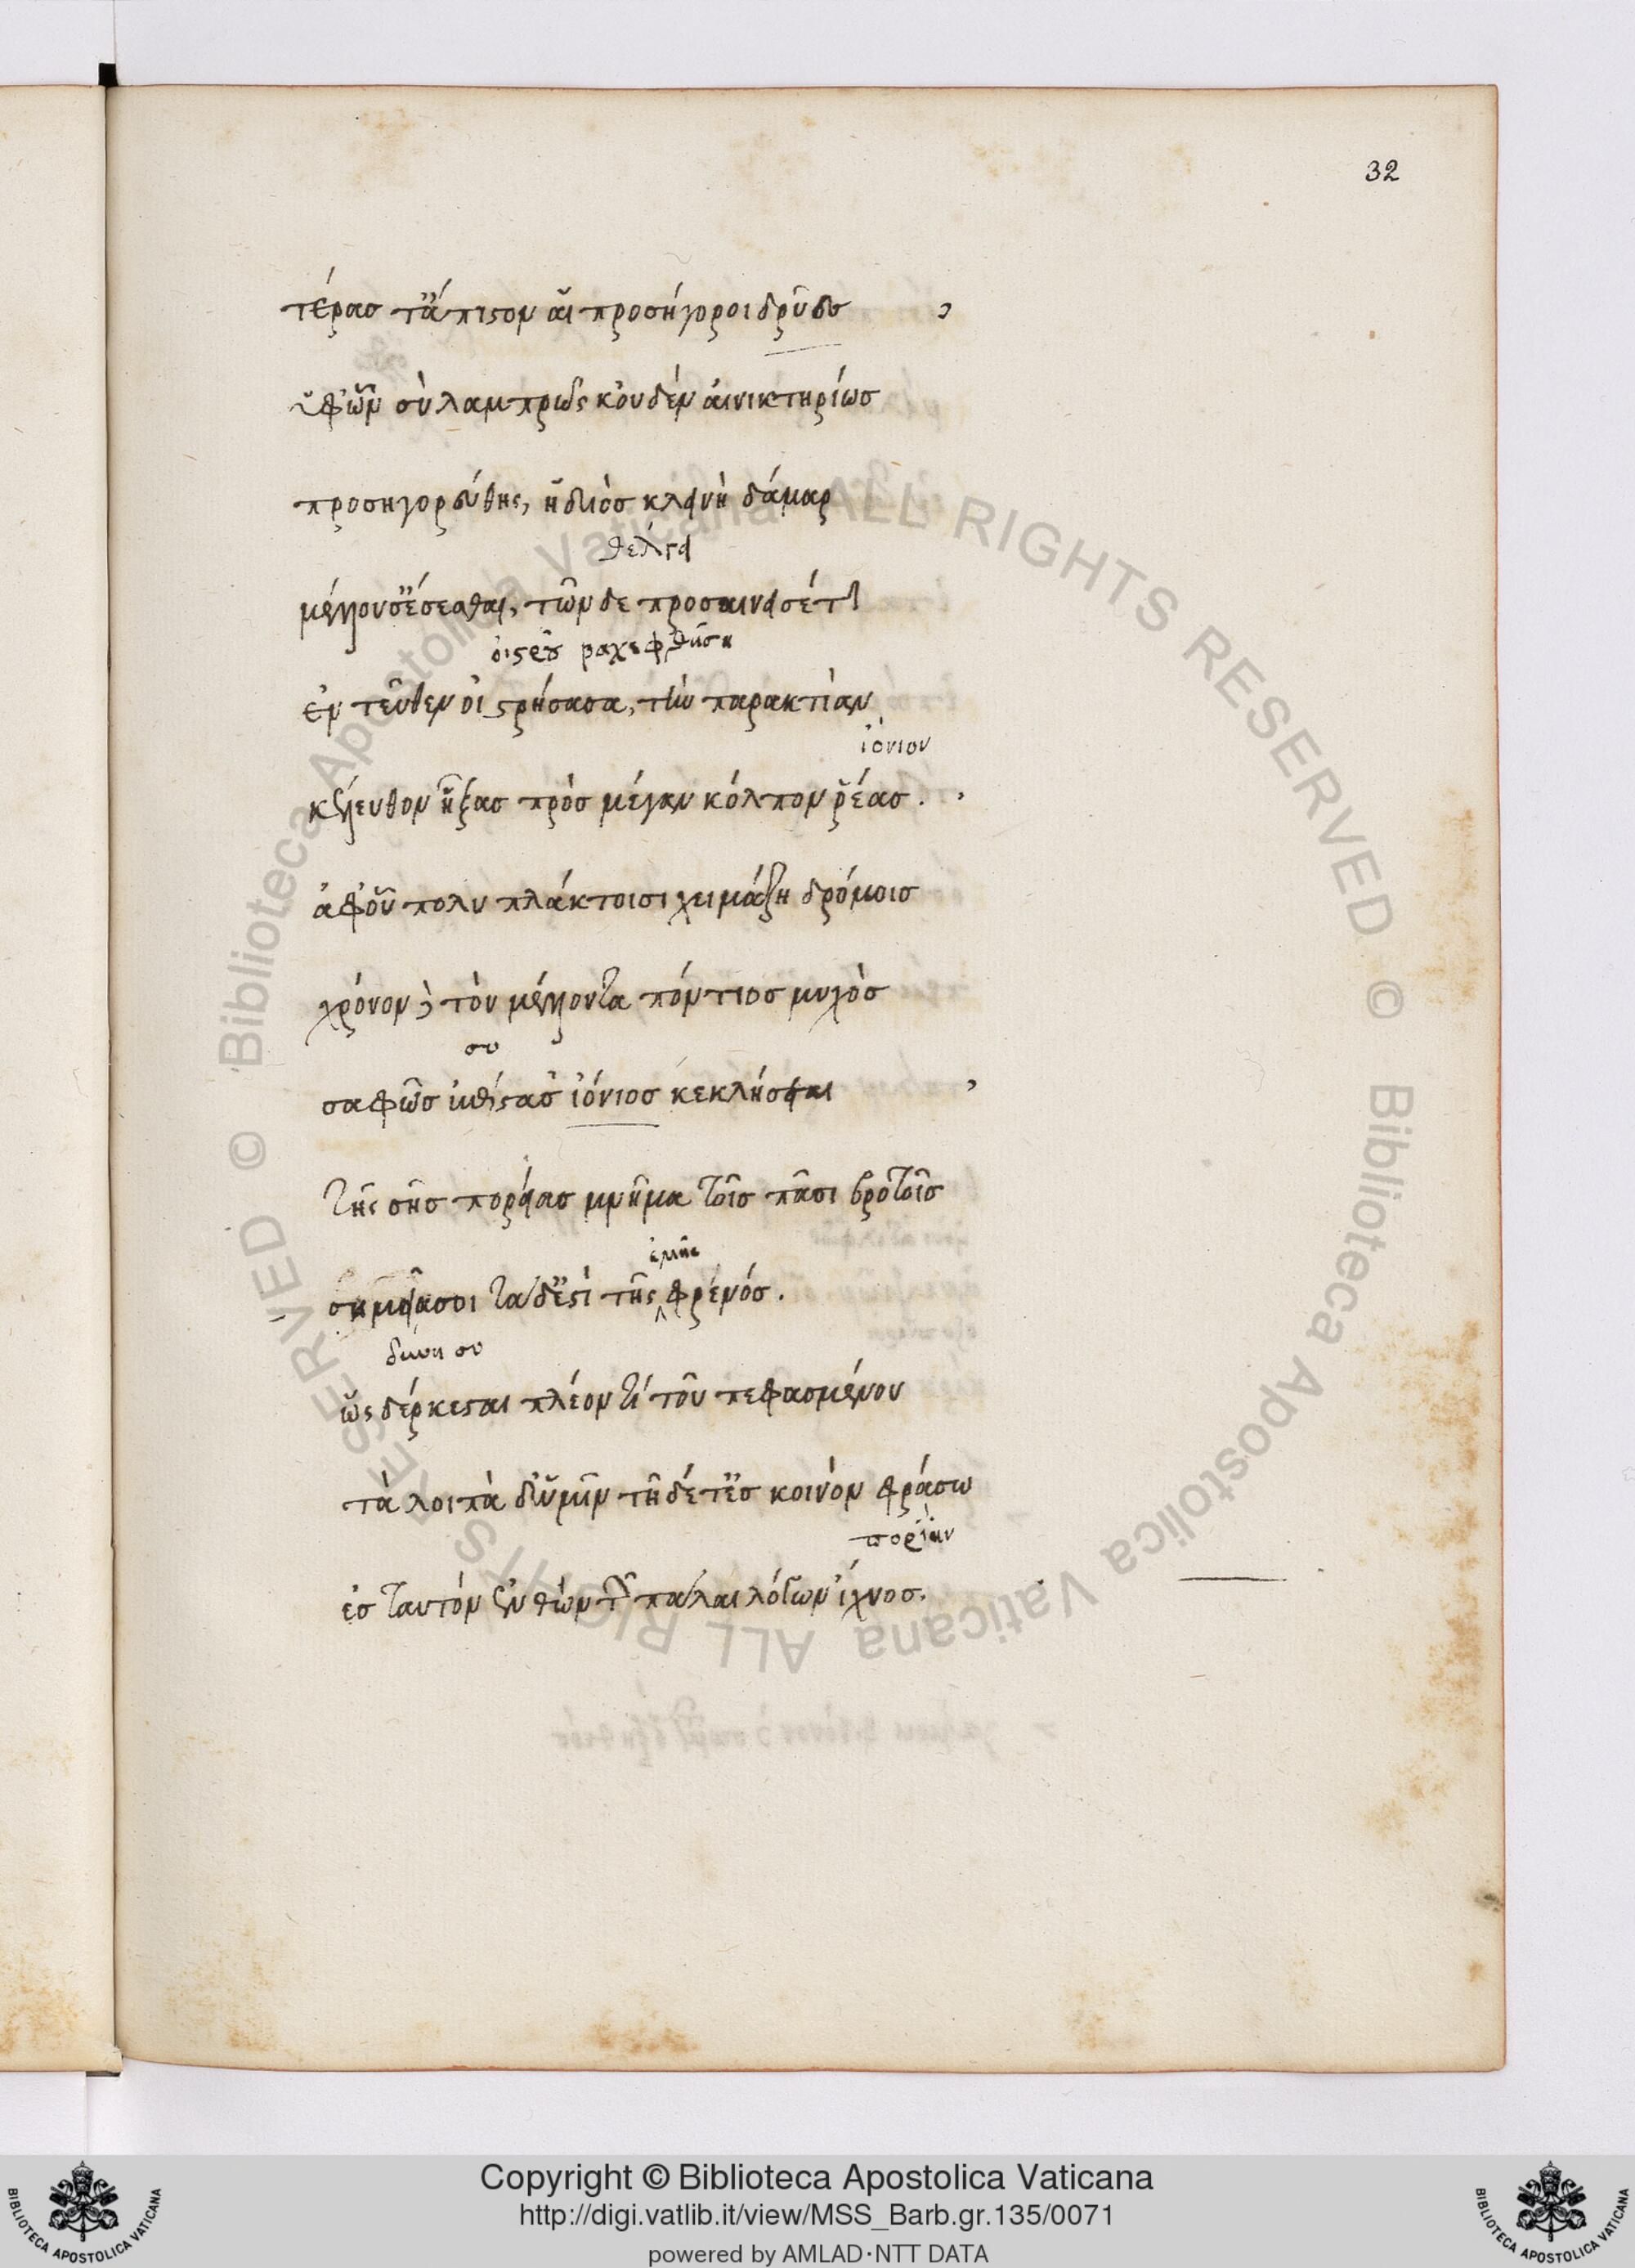 32
τέρας τ' ἄπιστον αἱ προσήγοροι δρύες
ὑφ' ὧν σὺ λαμπρῶς κοὐδὲν αἰνικτηρίως
προσηγορεύθης, ἡ διὸς κλεινὴ δάμαρ
θέλγει
μέλλουσ' ἔσεσθαι, τῶνδε προσσαίνει σέ τι
ἐντεῦθεν οἰστρήσασα, τὴν παρακτίαν
ἰόνιον
κέλευθον ἦξας πρὸς μέγαν κόλπον ῥέας.
ἀφ' οὗ πολυπλάκτοισι χειμάζη δρόμοις
χρόνον δὲ τὸν μέλλοντα πόντιος μυχὸς
σου
σαφῶς ἐπίστασ' ἰόνιος κεκλήσεται
τῆς σῆς πορείας μνῆμα τοῖς πᾶσι βροτοῖς
ἐμῆς
σημεῖά σοι τάδ' ἐστὶ τῆς φρενός.
ὡς δέρκεται πλέον τί τοῦ πεφασμένου
τὰ λοιπὰ δ' ὑμῖν τῆδέ τ' ἐς κοινὸν φράσω
πορείαν
ἐς ταυτὸν ἐλθὼν τῶν πάλαι λόγων ἴχνος.
BIBLIOTECA APOSTOLICA VATICANA
Copyright © Biblioteca Apostolica Vaticana
http://digi.vatlib.it/view/MSS_Barb.gr.135/0071
powered by AMLAD·NTT DATA
BIBLIOTECA APOSTOLICA VATICANA
© Biblioteca Apostolica Vaticana ALL RIGHTS RESERVED © Biblioteca Apostolica Vaticana ALL RIGHTS RESERVED